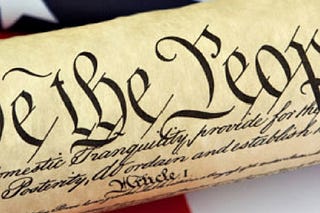 We the Peop
omestic Tranquility, provide for th
Posterity, do ordain and establish
Article I